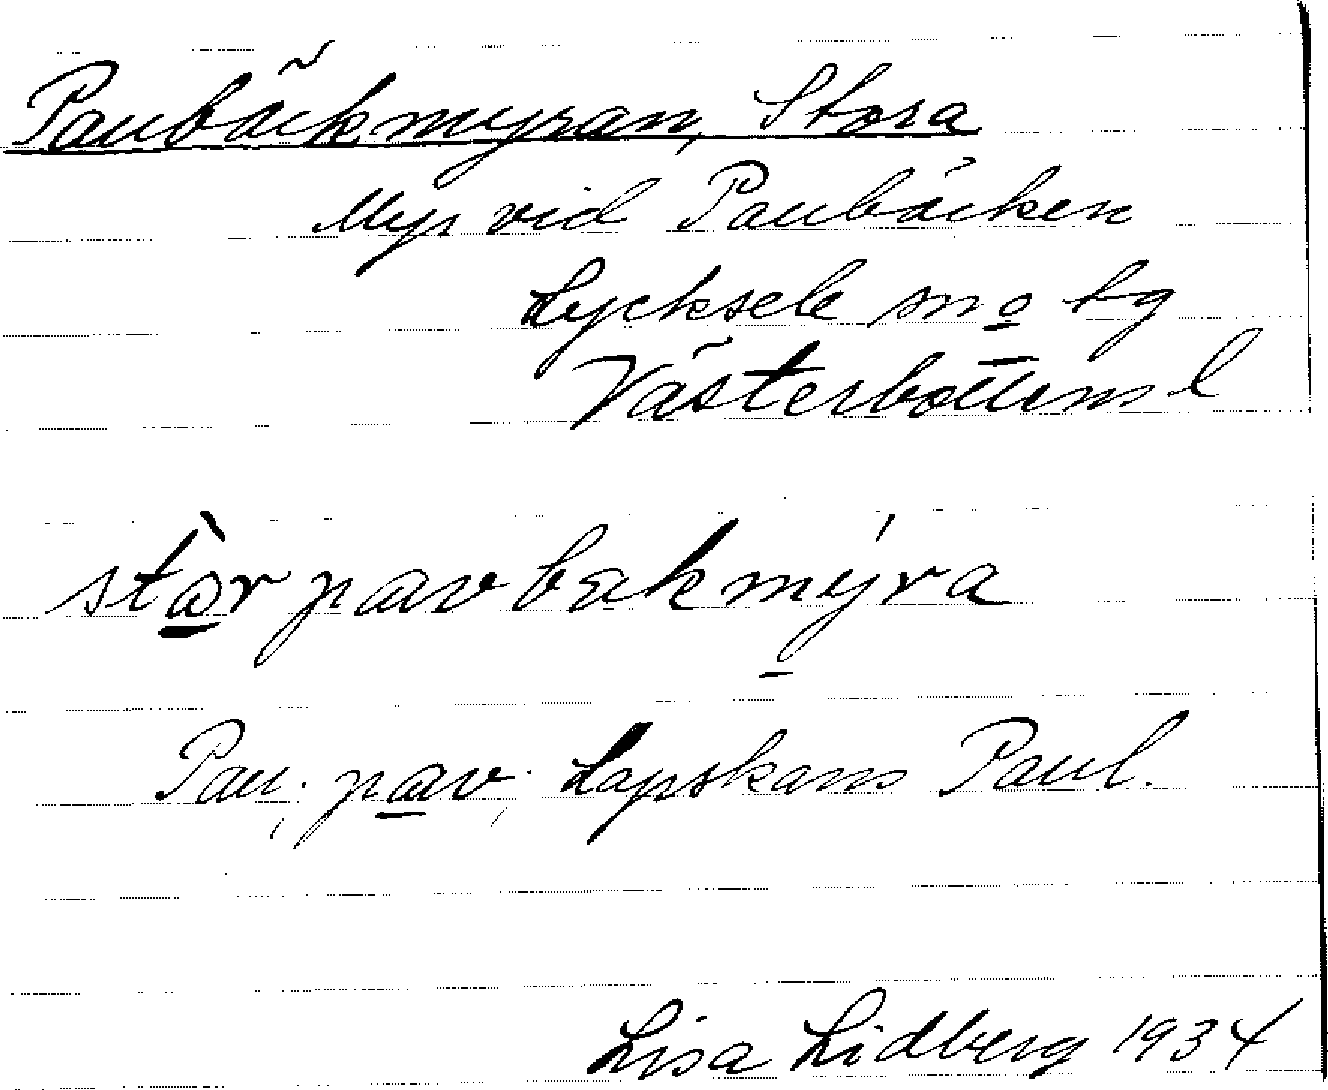 Paubäckmyran, Stora
Myr vid Paubäcken
Lycksele sn o tg
Västerbottens l
stòr pavbækmýra
Pau; pav; Lapskans Paul.
Lisa Lidberg 1934